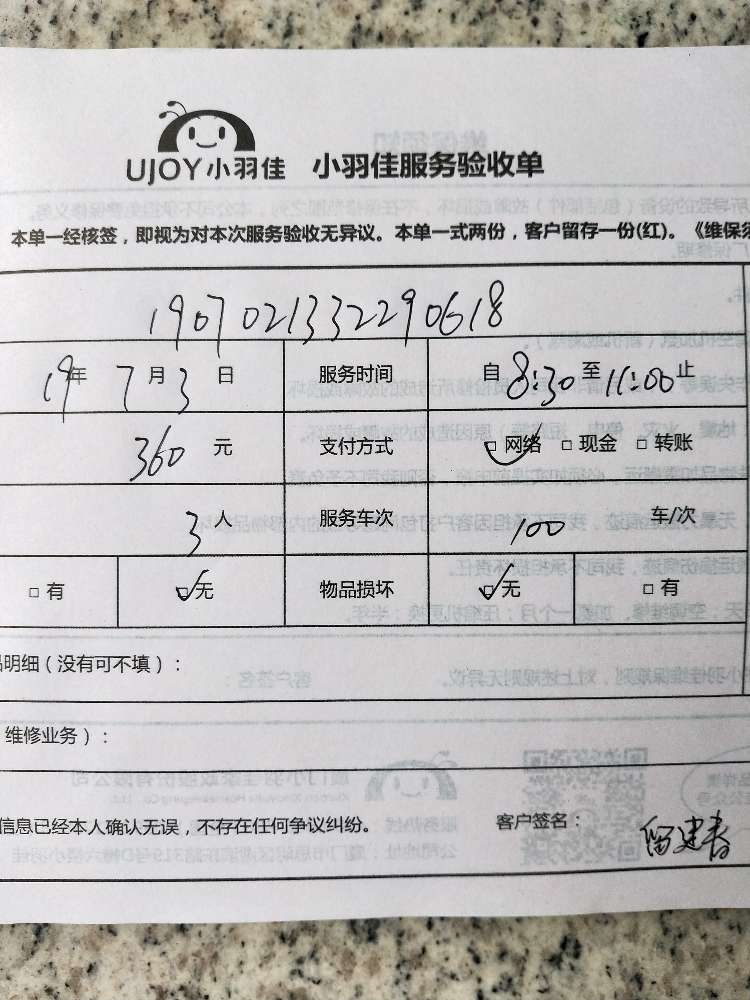 UJOY小羽佳 小羽佳服务验收单
本单一经核签，即视为对本次服务验收无异议。本单一式两份，客户留存一份(红)。《维保须
1907021332290618
19年 7月3日 服务时间 自8:30至11:00止
360元 支付方式 □网络 □现金 □转账
3人 服务车次 100 车/次
□有 □无 物品损坏 □无 □有
品明细（没有可不填）：
维修业务）：
信息已经本人确认无误，不存在任何争议纠纷。 客户签名：留建春